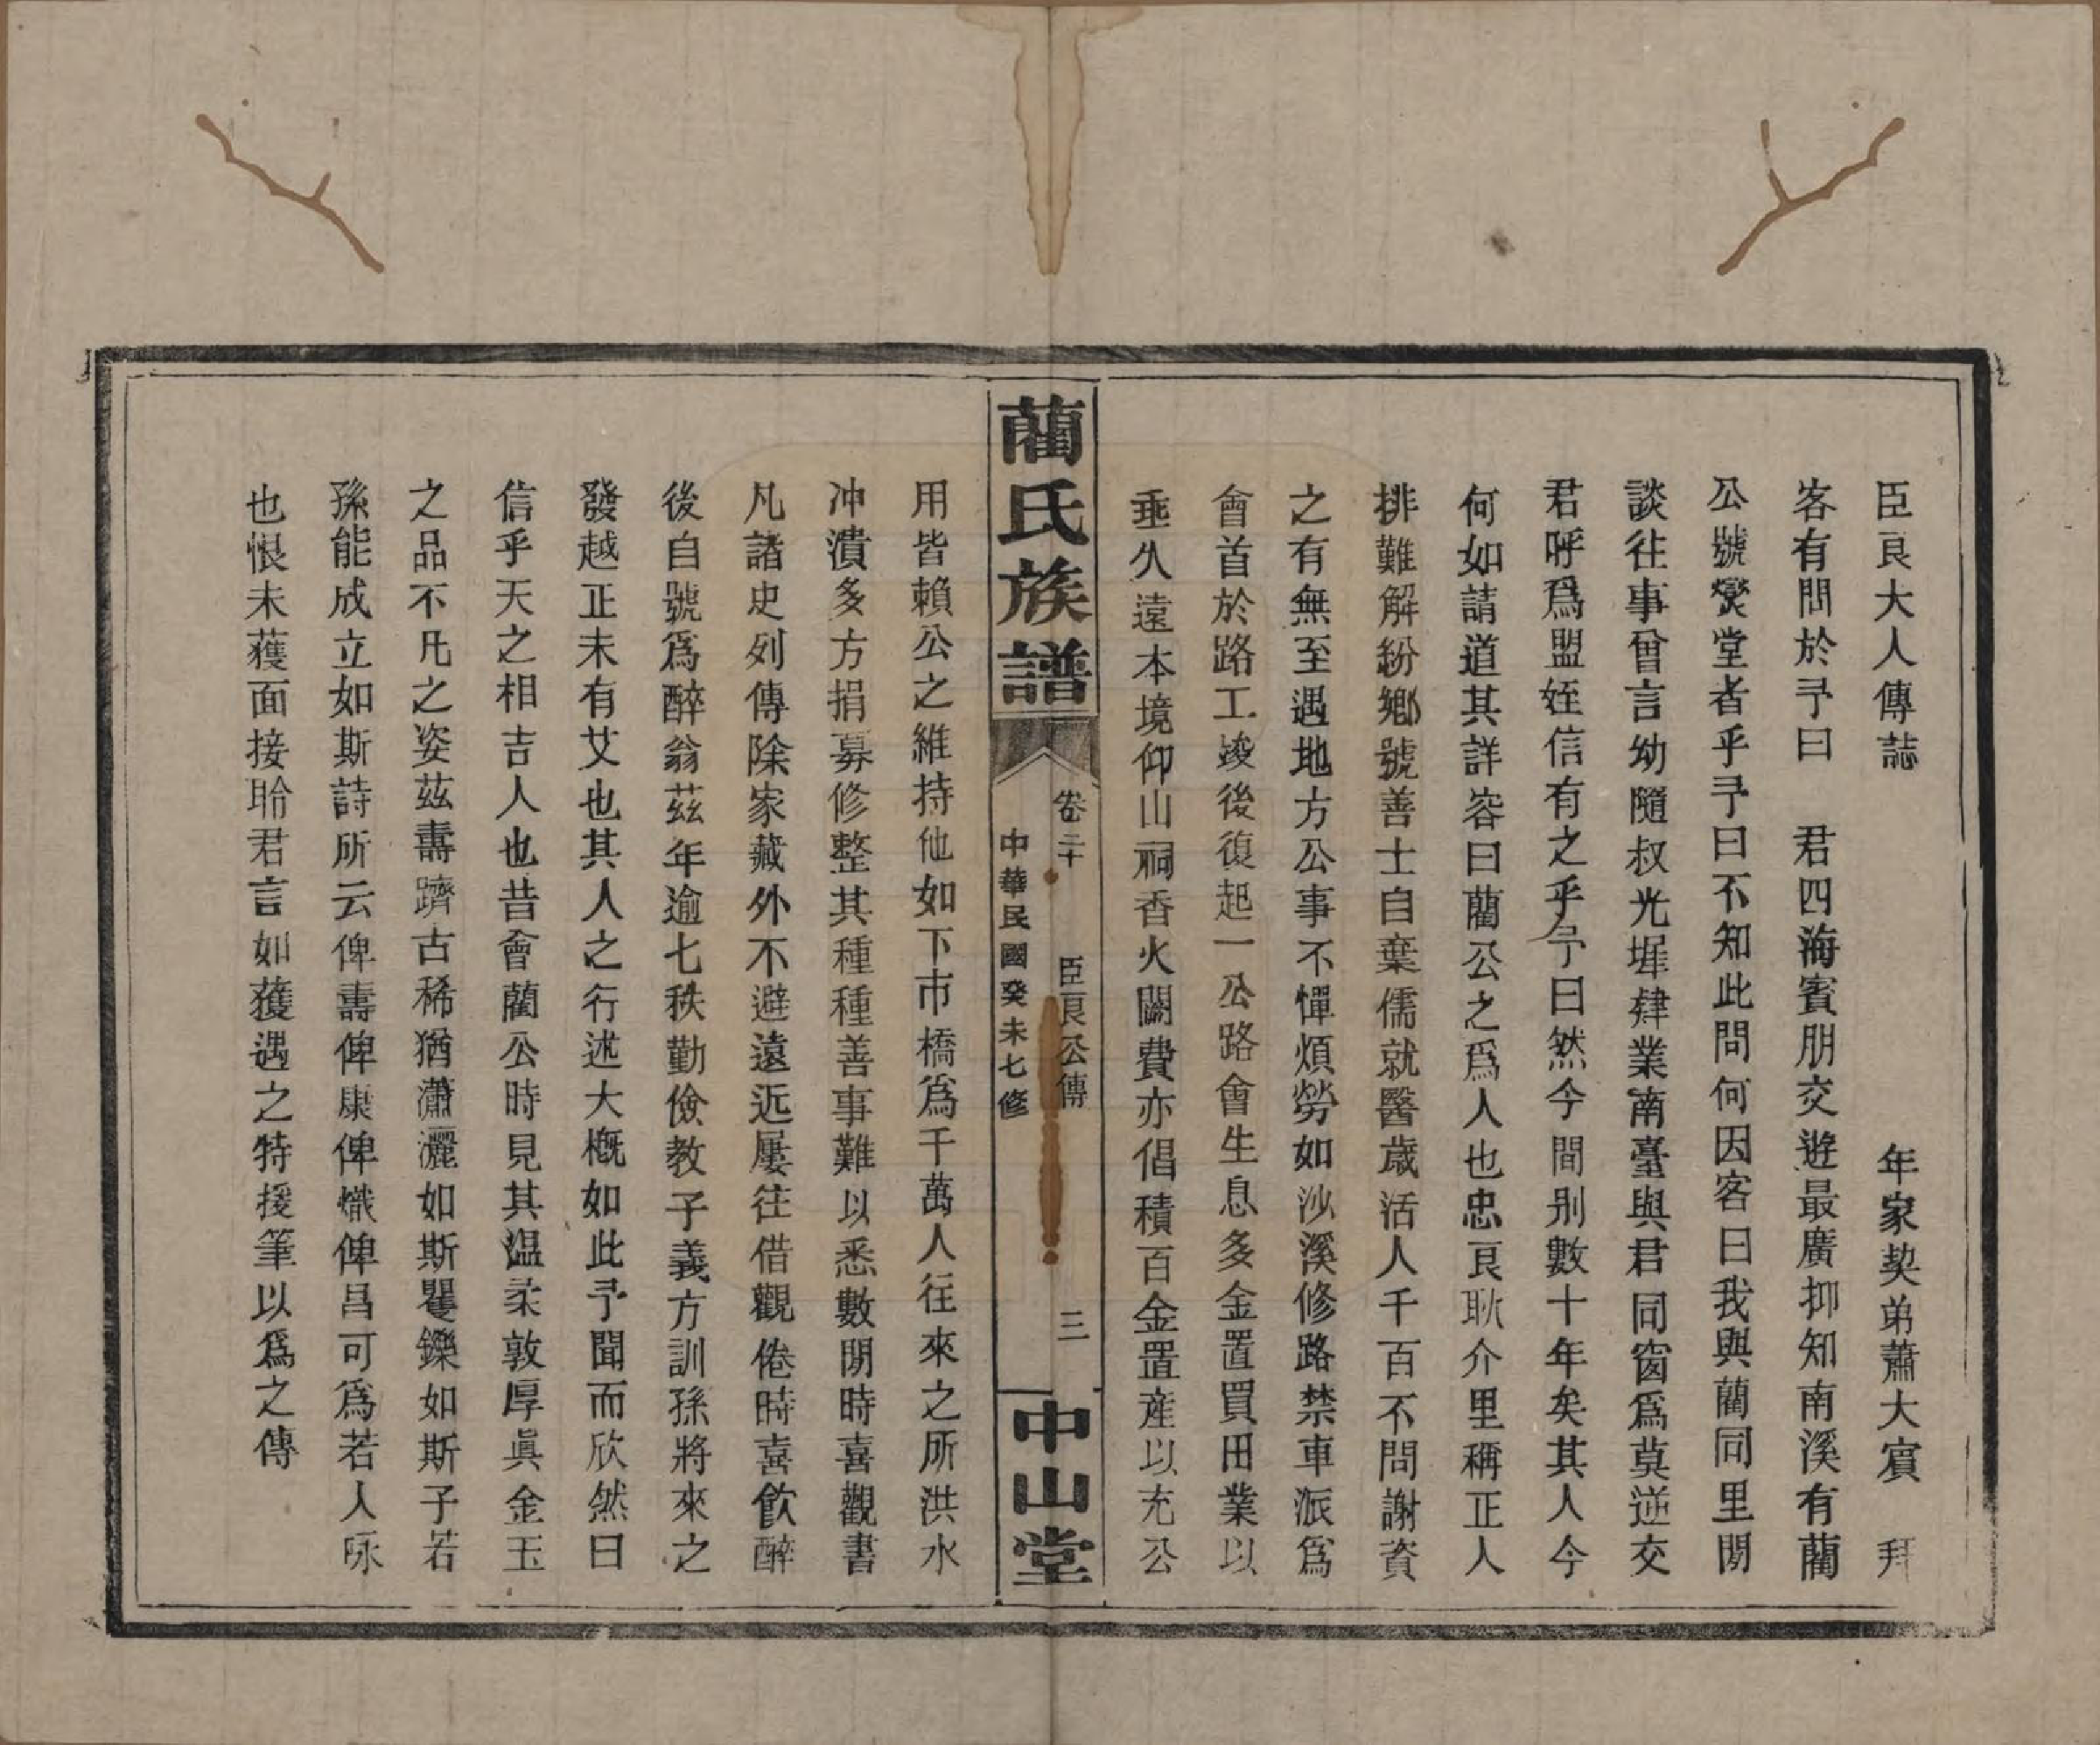 臣良大人傳誌　年家契弟蕭大賓　拜
客有問於予曰　君四海賓朋交遊最廣抑知南溪有藺
公號爕堂者乎予曰不知此問何因客曰我與藺同里閈
談往事曾言幼隨叔光墀肄業南臺與君同窗爲莫逆交
君呼爲盟姪信有之乎予曰然今間别數十年矣其人今
何如請道其詳容曰藺公之爲人也忠良耿介里稱正人
排難解紛鄉號善士自棄儒就醫歲活人千百不問謝資
之有無至遇地方公事不憚煩勞如沙溪修路禁車派爲
會首於路工竣後復起一公路會生息多金置買田業以
垂久遠本境仰山祠香火闕費亦倡積百金置産以充公
藺氏族譜
卷二十　臣良公傳　三
中華民國癸未七修
中山堂
用皆賴公之維持他如下市橋爲千萬人往來之所洪水
冲潰多方捐募修整其種種善事難以悉數閒時喜觀書
凡諸史列傳除家藏外不避遠近屢往借觀倦時喜飲醉
後自號爲醉翁茲年逾七秩勤儉教子義方訓孫將來之
發越正未有艾也其人之行述大概如此予聞而欣然曰
信乎天之相吉人也昔會藺公時見其溫柔敦厚眞金玉
之品不凡之姿茲壽躋古稀猶瀟灑如斯矍鑠如斯子若
孫能成立如斯詩所云俾壽俾康俾熾俾昌可爲若人咏
也恨未獲面接聆君言如獲遇之特援筆以爲之傳